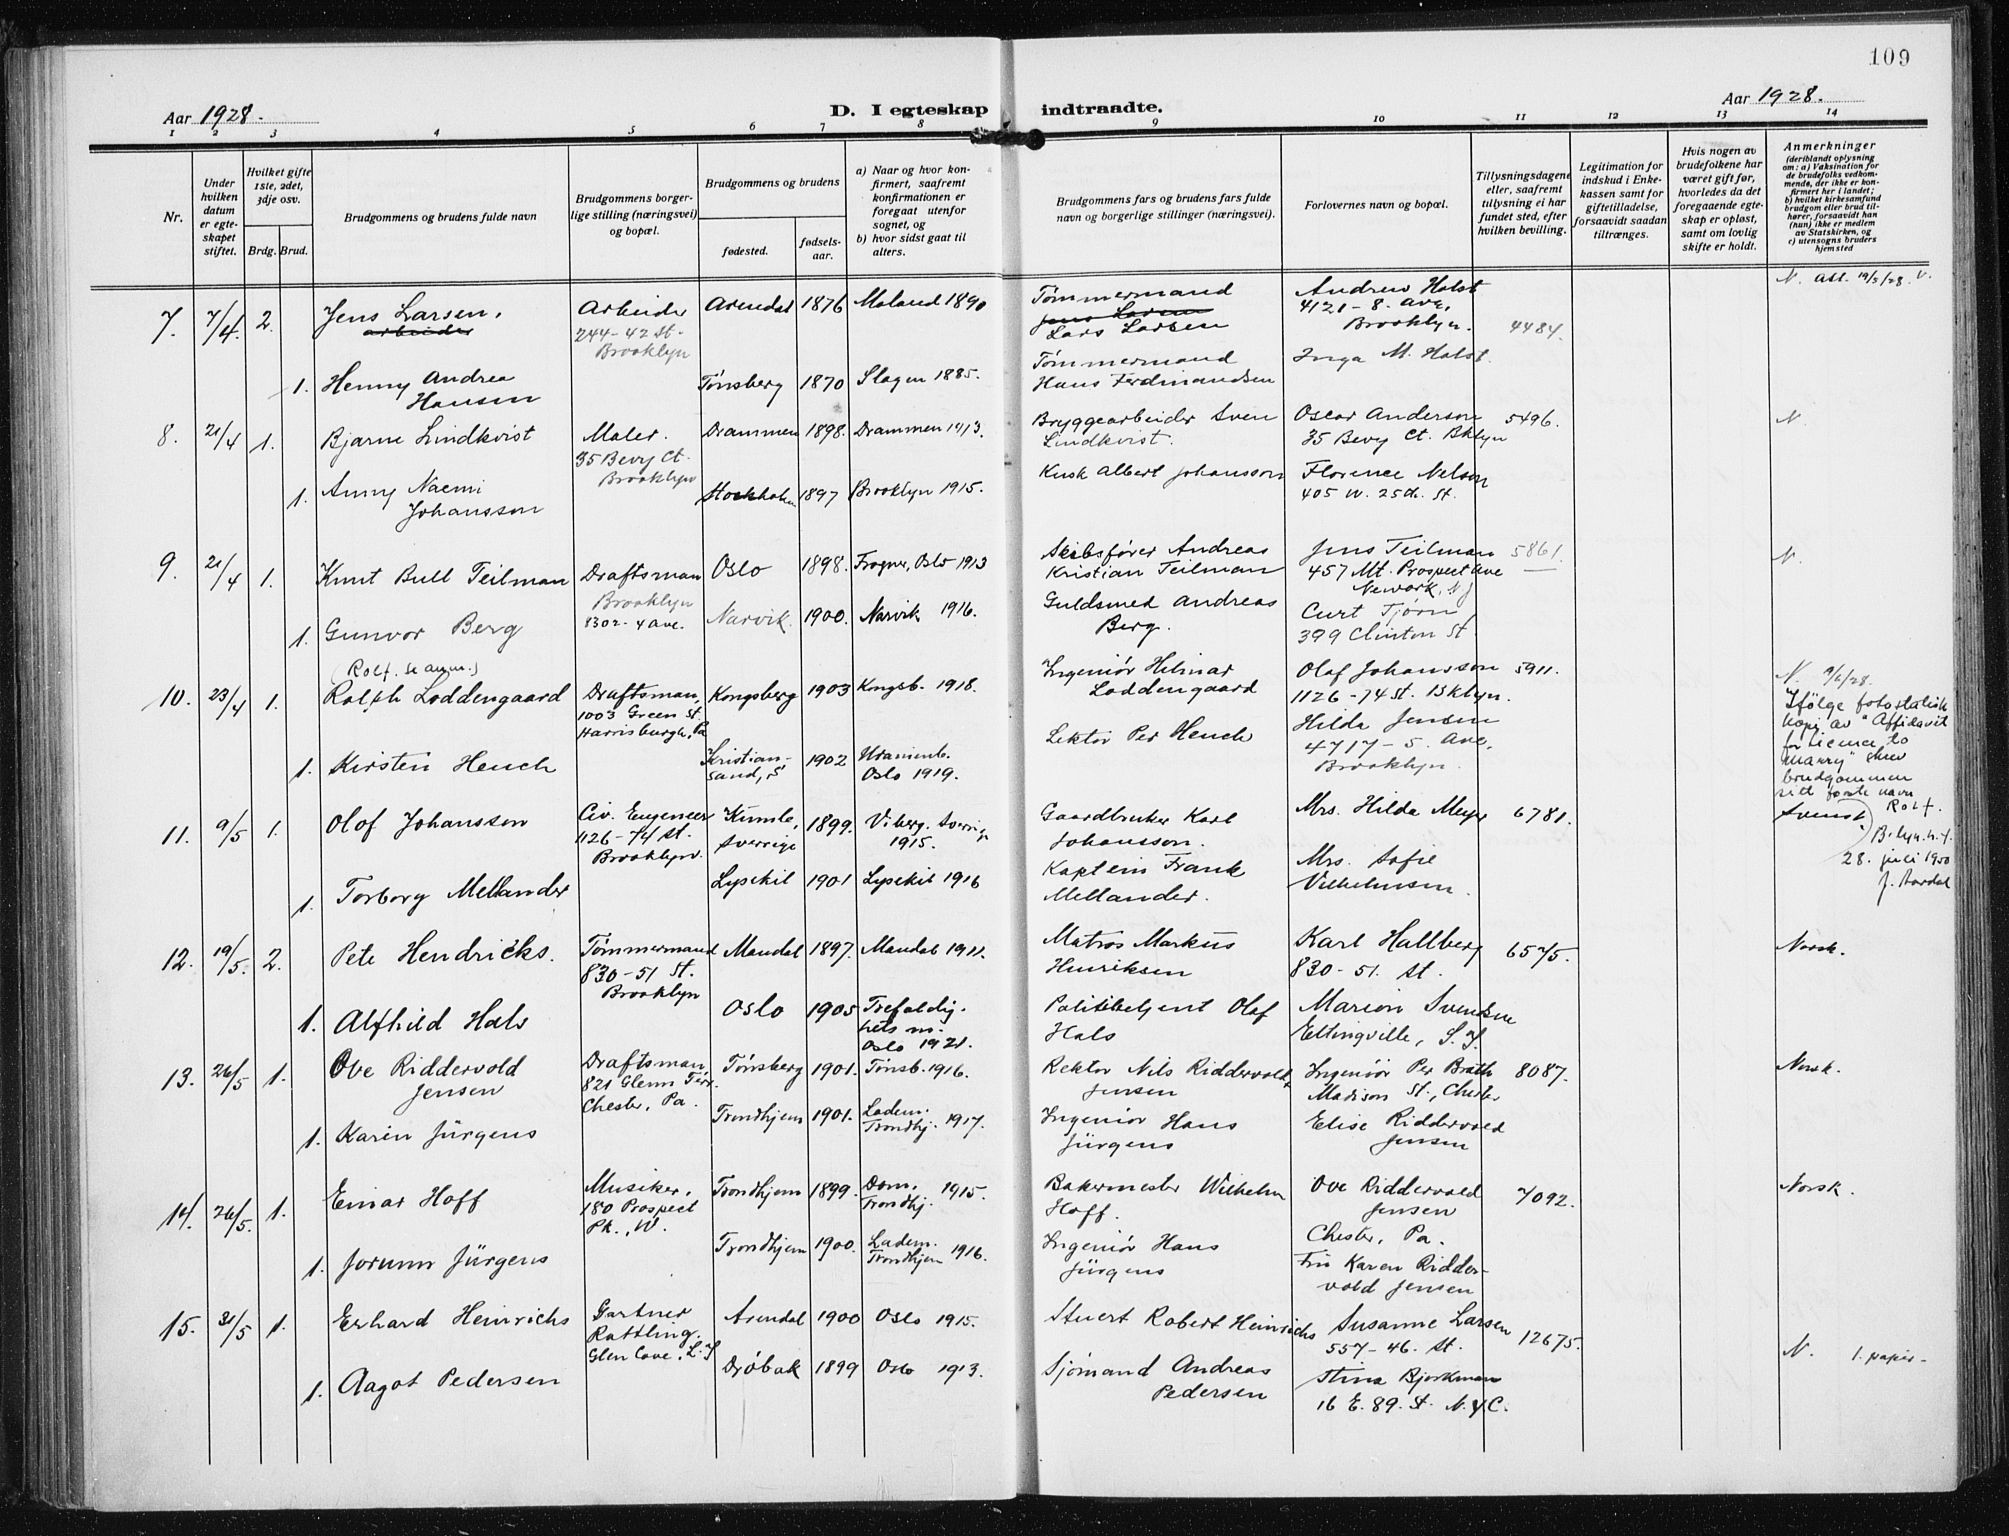 109
Aar 1928.
D. I egteskap indtraadte.
Aar 1928.
1 2 3 4 5 6 7 8 9 10 11 12 13 14
Nr.
Under hvilken datum er egteskapet stiftet.
Hvilket gifte 1ste, 2det, 3dje osv.
Brdg. Brud.
Brudgommens og brudens fulde navn
Brudgommens borgerlige stilling (næringsvei) og bopæl.
Brudgommens og brudens
fødested.
fødselsaar.
a) Naar og hvor konfirmert, saafremt konfirmationen er foregaat utenfor sognet, og
b) hvor sidst gaat til alters.
Brudgommens fars og brudens fars fulde navn og borgerlige stillinger (næringsvei).
Forlovernes navn og bopæl.
Tillysningsdagene eller, saafremt tillysning ei har fundet sted, efter hvilken bevilling.
Legitimation for indskud i Enkekassen samt for giftetilladelse, forsaavidt saadan tiltrænges.
Hvis nogen av brudefolkene har været gift før, hvorledes da det foregaaende egteskap er opløst, samt om lovlig skifte er holdt.
Anmerkninger
(deriblandt oplysning om: a) Vaksination for de brudefolks vedkommende, der ikke er konfirmert her i landet;
b) hvilket kirkesamfund brudgom eller brud tilhører, forsaavidt han (hun) ikke er medlem av Statskirken, og
c) utensogns bruders hjemsted
7. 7/4 2. Jens Larsen, arbeider
Arbeider 244-42 st. Brooklyn
Arendal 1876 Moland 1890
Tømmermand Jens Larsen Lars Larsen
Andrew Holst 4121-8. Ave, Brooklyn.
4484.
N. att. 19/5/28. V.
1. Henny Andrea Hansen
Tønsberg 1870 Slagen 1885.
Tømmermand Hans Ferdinandsen
Inga M. Holst.
8. 21/4 1. Bjarne Lindkvist
Maler. 35 Bevy Ct. Brooklyn
Drammen 1898. Drammen 1913.
Bryggearbeider Sven Lindkvist.
Oscar Anderson 35 Bevy Ct. Bklyn
5496.
N.
1. Anny Naemi Johansson
Stockholm 1897 Brooklyn 1915.
Kusk Albert Johansson
Florence Nelson 405 W. 25th. St.
9. 21/4 1. Knut Bull Teilman
Draftsman Brooklyn 8302-4 Ave.
Oslo 1898. Frogner, Oslo 1913
Skibsfører Andreas Kristian Teilman
Jens Teilman 457 Mt. Prospect Ave Newark, N J
5861.
N.
1. Gunvor Berg
Narvik. 1900. Narvik 1916.
Guldsmed Andreas Berg.
Curt Tjørn 399 Clinton St.
(Rolf. se anm.)
10. 23/4 1. Ralph Loddengaard
Draftsman, 1003 Green St. Harrisburgh, Pa
Kongsberg 1903 Kongsb. 1918.
Ingeniør Hilmar Loddengaard
Olaf Johansson 1126-74 St. Bklyn.
5911.
N. 9/6/28.
Ifølge fotostatisk kopi av "Affidavit for license to marry" skrev brudgommen sitt første navn Rolf.
B.lyn. N.Y. 28. juli 1950
1. Kirsten Hench
Kristiansand, S 1902 Uranienb. Oslo 1919.
Lektor Per Hench
Hilda Jensen 4717-5. Ave, Brooklyn.
11. 9/5 1. Olof Johansson
Civ. Engeneer 1126-74 St. Brooklyn.
Kumla, Sverrige 1899. Viberg. Sverrige 1915.
Gaardbruker Karl Johansson.
Mrs. Hilda Meyer
6781.
Svensk.
1. Torborg Mellander
Lysekil 1901 Lysekil 1916
Kaptein Frank Mellander.
Mrs. Sofie Vilhelmsen.
12. 19/5. 2. Pete Hendricks.
Tømmermand 830-51 St. Brooklyn
Mandal 1897. Mandal 1911.
Matros Markus Henriksen
Karl Hallberg 830-51. St.
6575.
Norsk.
1. Alfhild Hals
Oslo 1905 Trefoldighets m. Oslo 1921.
Politibetjent Olaf Hals
Marion Svendsen Eltingville, S. I.
13. 26/5 1. Ove Riddervold Jensen
Draftsman, 821 Glenn Terr. Chester, Pa.
Tønsberg 1901. Tønsb. 1916.
Rektor Nils Riddervold Jensen
Ingeniør Per Bratt Madison St., Chester
8087.
Norsk.
1. Karin Jürgens
Trondhjem 1901. Ladem. Trondhj. 1917.
Ingeniør Hans Jürgens
Elise Riddervold Jensen
14. 26/5. 1. Einar Hoff
Musiker, 180 Prospect Pk., W.
Trondhjem 1899. Dom. Trondhj. 1915.
Bakermester Wilhelm Hoff.
Ove Riddervold Jensen Chester, Pa.
7092.
Norsk.
1. Jorunn Jürgens
Trondhjem 1900. Ladem. Trondhjem 1916.
Ingeniør Hans Jürgens
Fru Karen Riddervold Jensen
15. 31/5 1. Erhard Heinrichs
Gartner Rattling. Glen Cove, L. I
Arendal 1900 Oslo 1915.
Stuert Robert Heinrichs
Susanne Larsen 557-46. St.
12675.
N. 1. papir-
1. Aagot Pedersen
Drøbak 1899 Oslo 1913.
Sjømand Andreas Pedersen
Stina Bjorkman 16 E. 89. St. N.Y.C.